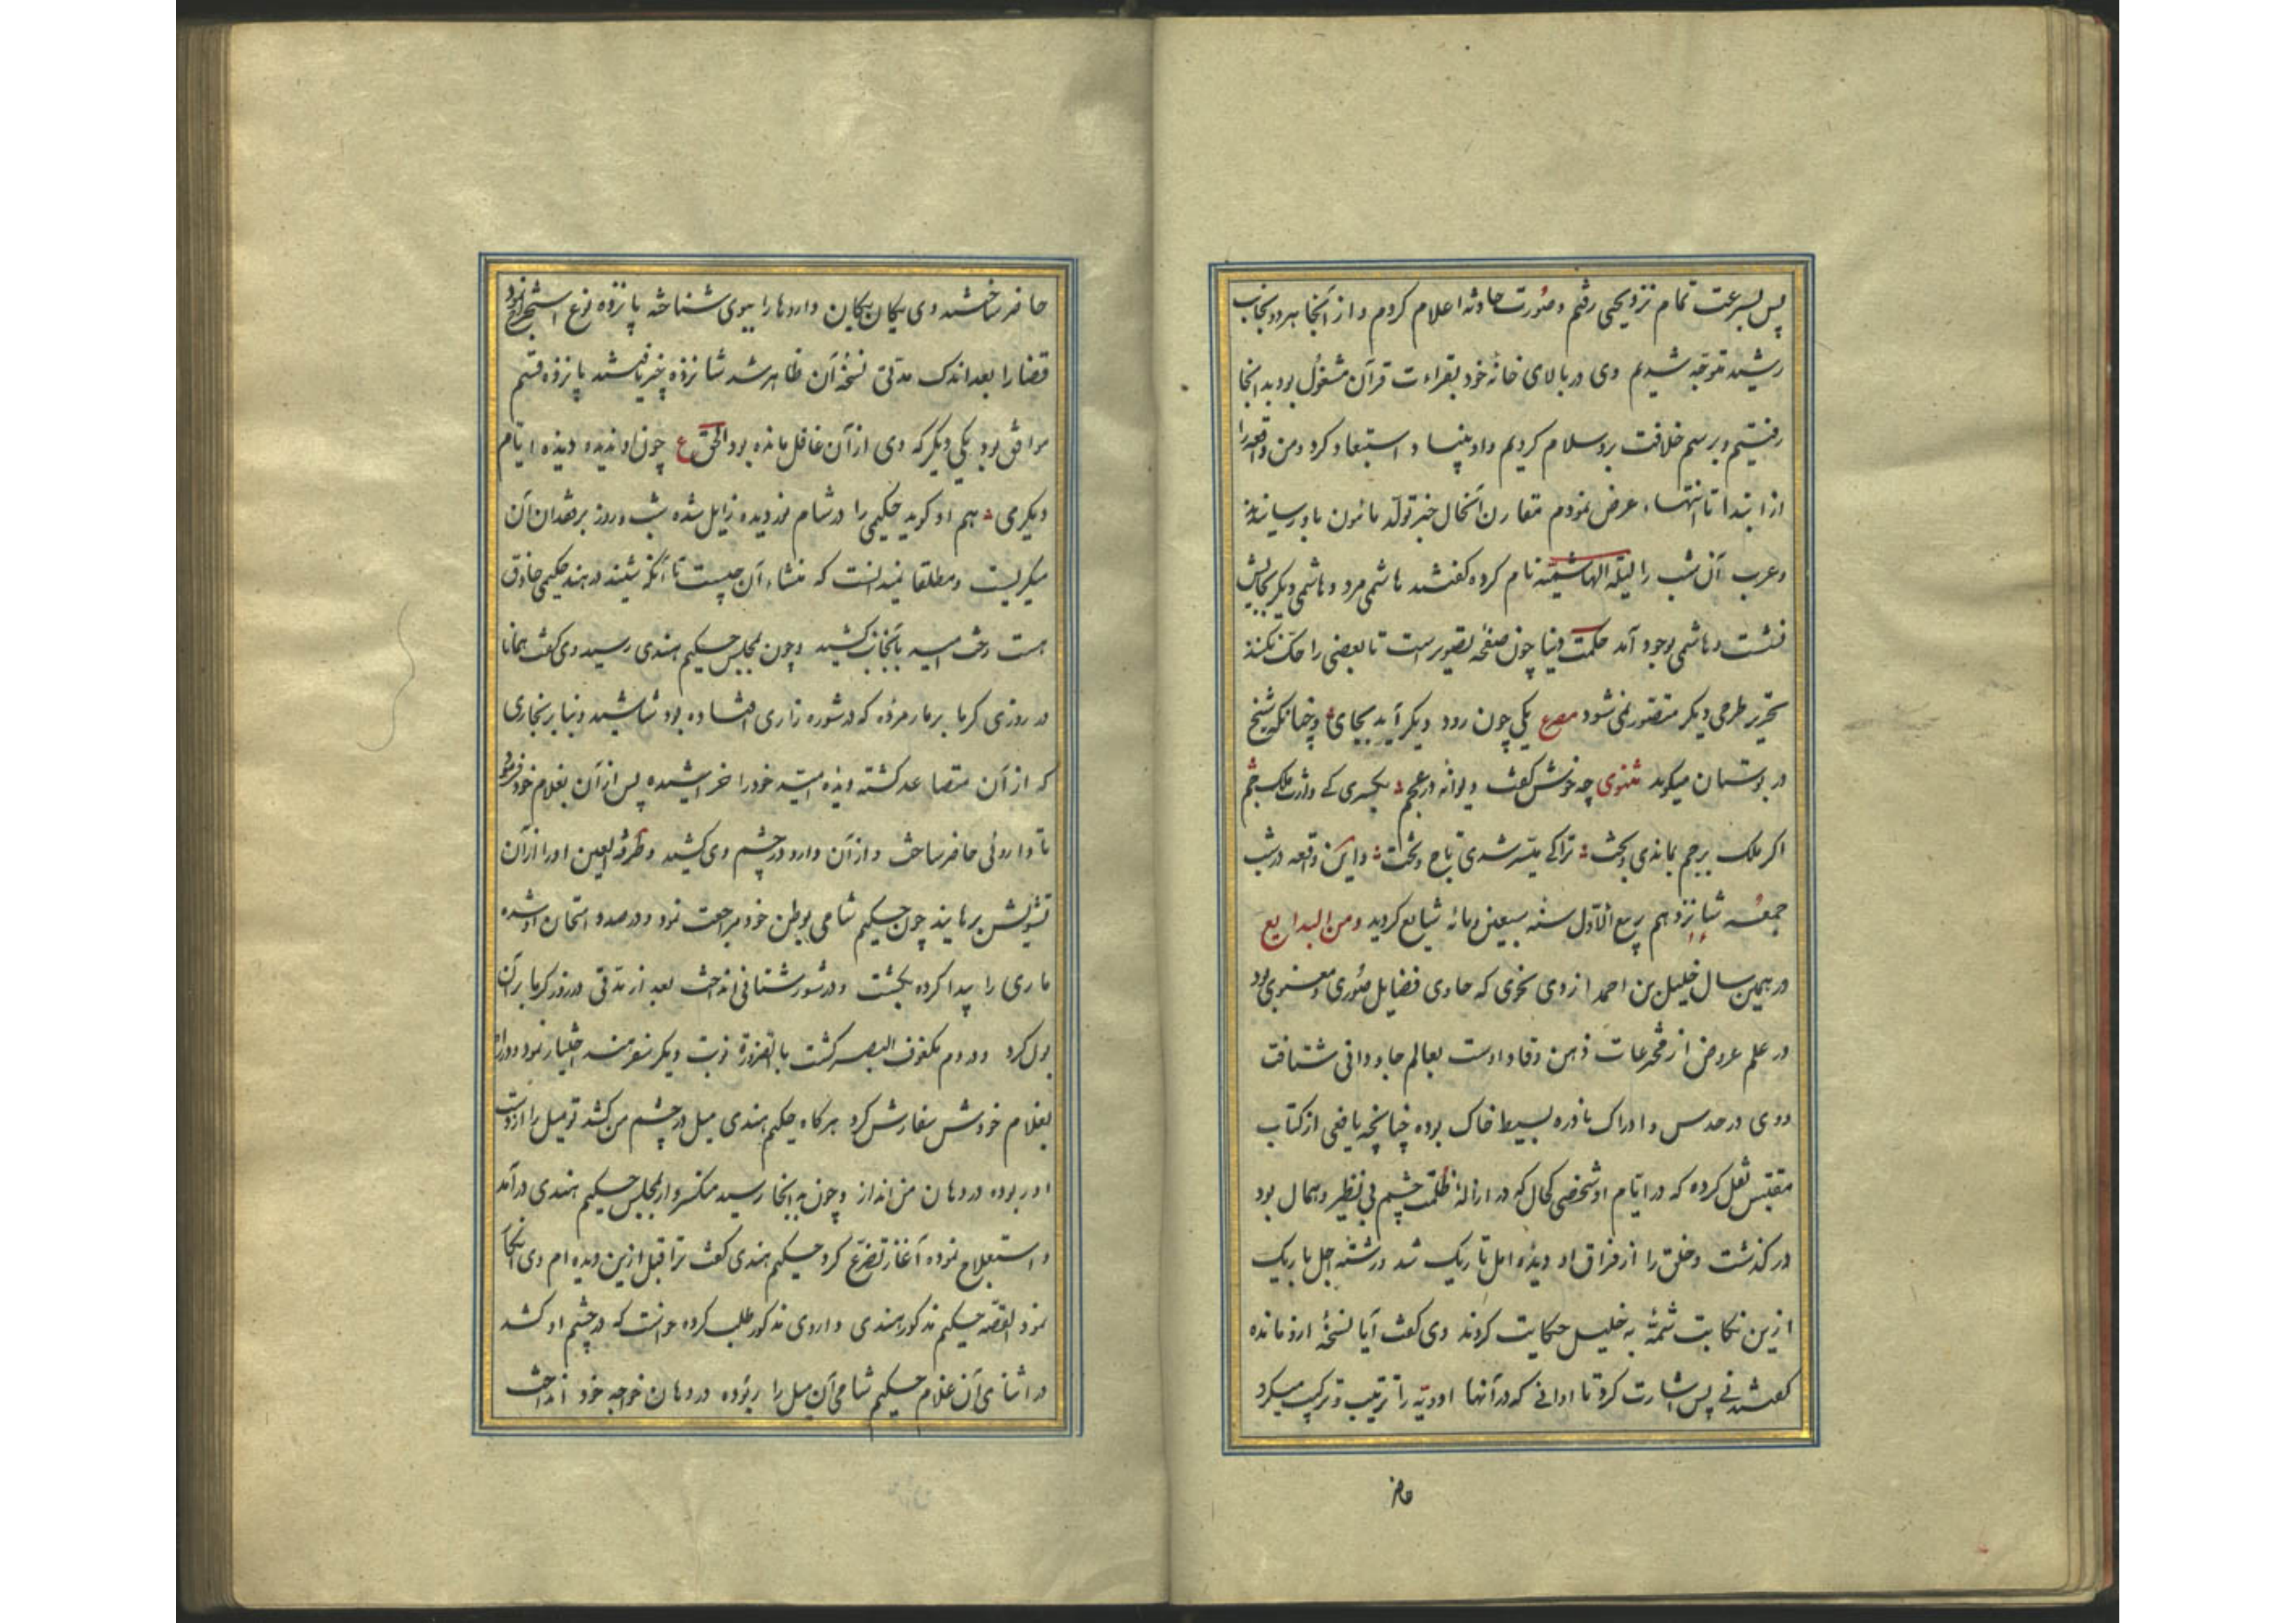 پس بسرعت تمام نزد یحیی رفتم و صورت حادثه اعلام کردم و از آنجا هر دو بجانب
رشید متوجه شدیم وی در بالای خانه خود بقراءت قرآن مشغول بود بدانجا
رفتیم و برسم خلافت برو سلام کردیم و استبعاد کرد و من واقعه را
از ابتدا تا انتهاء عرض نمودم مقارن آنحال خبر تولد مأمون باو رسانیدند
و عرب آن شب را لیلة الهاشمیة نام کرده گفتند هاشمی مرد و هاشمی دیگر بجایش
نشست و هاشمی بوجود آمد حکمت دنیا چون صفحه تصویر است تا بعضی را حک نکنند
تحریر طرحی دیگر متصور نمی شود مصرع یکی چون رود دیگر آید بجای و چنانکه شیخ
در بوستان میگوید مثنوی چه خوش گفت دیوانه در عجم بکسری که وارث ملک جم
اگر ملک بر جم بماندی و بخت ترا کی میسر شدی تاج و تخت و این واقعه در شب
جمعه شانزدهم ربیع الاول سنه سبعین و مائه شایع گردید و من البدایع
در همین سال خلیل بن احمد ازدی نحوی که حاوی فضایل صوری و معنوی بود
در علم عروض از مخترعات ذهن وقاد اوست بعالم جاودانی شتافت
و وی در حدس و ادراک نادره بسیط خاک بوده چنانچه یافعی از کتاب
مقتبس نقل کرده که در ایام او شخصی کحال که در ازاله ظلمت چشم بی نظیر و همال بود
در گذشت و خلق را از فراق او دیده امل تاریک شد و رشته اجل باریک
ازین نکایت شمه به خلیل حکایت کردند وی گفت آیا نسخه ازو مانده
گفتند نی پس اشارت کرد تا اوانی که در آنها ادویه را ترتیب و ترکیب میکرد
حاضر
حاضر ساختند وی یکان یکان داروها را ببوی شناخته پانزده نوع استخراج نمود
قضا را بعد اندک مدتی نسخه آن ظاهر شد شانزده چیز یافتند پانزده قسم
موافق بود یکی دیگر که وی از آن غافل مانده بود الحق ع چون او ندیده دیده ایام
دیگری هم او گوید حکیمی را در شام نور دیده زایل شده شب و روز بر فقدان آن
میگریست و مطلقا نمیدانست که منشاء آن چیست تا آنکه شنید در هند حکیمی حاذق
هست رخت امید بآنجانب کشید و چون بمجلس حکیم هندی رسید وی گفت همانا
در روزی گرما بر مار مرده که در شوره زاری افتاده بود شاشیده و بنا بر بخاری
که از آن متصاعد گشته دیده امید خود را خراشیده پس از آن بغلام خود فرمود
تا داروئی حاضر ساخت و از آن دارو در چشم وی کشید و طرفة العین او را از آن
تشویش برهانید چون حکیم شامی بوطن خود مراجعت نمود و در صدد امتحان او شده
ماری را پیدا کرده بکشت و در شورستانی انداخت بعد از مدتی در روز گرما بر آن
بول کرد و در دم مکفوف البصر گشت بالضرورة نوبت دیگر سفر هند اختیار نمود و در راه
بغلام خودش سفارش کرد هرگاه حکیم هندی میل در چشم من کشد تو میل را از دست
او ربوده در دهان من انداز و چون به آنجا رسید متنکر وار بمجلس حکیم هندی در آمد
و استعلاج نموده آغاز تضرع کرد حکیم هندی گفت ترا قبل ازین دیده ام وی انکار
نمود القصه حکیم مذکور هندی داروی مذکور طلب کرده خواست که در چشم او کشد
در اثنای آن غلام حکیم شامی آن میل را ربوده در دهان خواجه خود انداخت